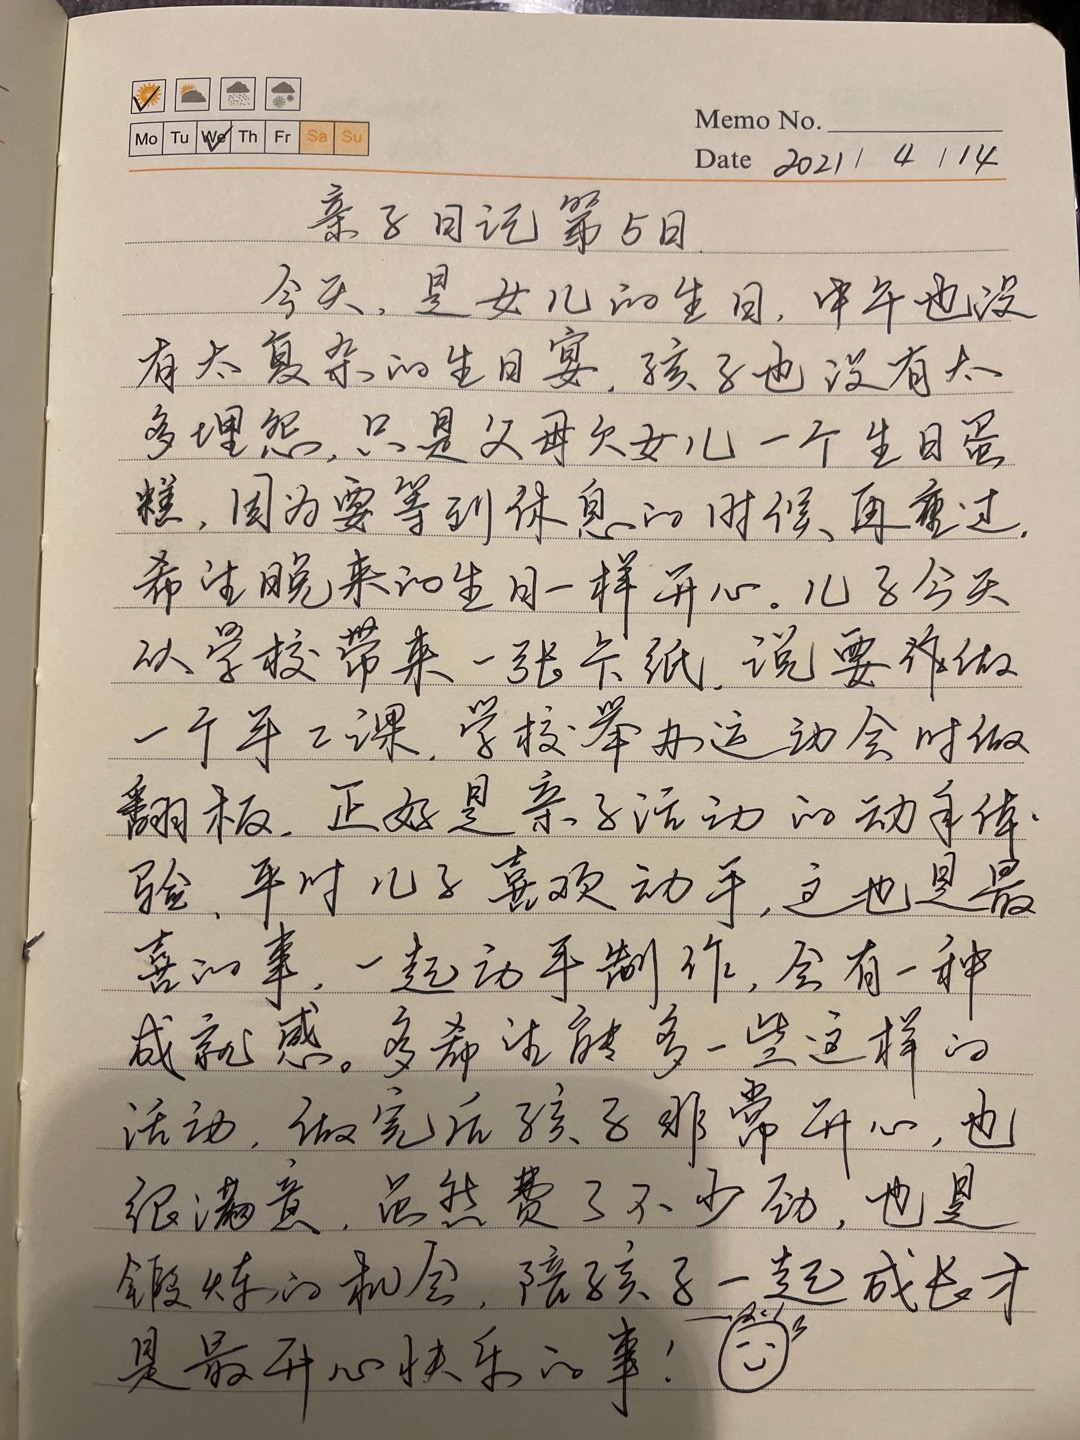 Mo Tu We Th Fr Sa Su
Memo No.
Date 2021 / 4 / 14
亲子日记第5日
今天,是女儿的生日,中午也没
有太复杂的生日宴,孩子也没有太
多埋怨,只是父母欠女儿一个生日蛋
糕,因为要等到休息的时候、再重过,
希望晚来的生日一样开心。儿子今天
从学校带来一张卡纸,说要做
一个手工课,学校举办运动会时做
翻板,正好是亲子活动的动手体
验,平时儿子喜欢动手,这也是最
喜的事,一起动手制作,会有一种
成就感。多希望能多一些这样的
活动,做完后孩子非常开心,也
很满意,虽然费了不少劲,也是
锻炼的机会,陪孩子一起成长才
是最开心快乐的事!